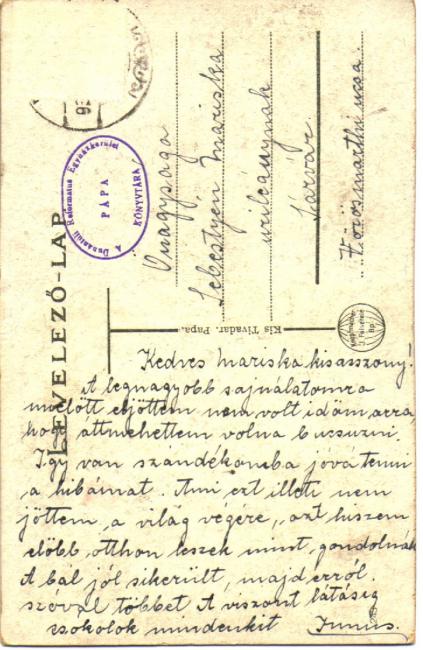 LEVELEZŐ-LAP
A Dunántúli Református Egyházkerület
PÁPA
KÖNYVTÁRA
Őnagysága
Sebestyén Mariska
urileánynak
Sárvár
Vörösmarthi ucca.
Kis Tivadar, Papa.
Kedves Mariska kisasszony!
A legnagyobb sajnálatomra
mielőtt eljöttem nem volt időm arra,
hogy áttmehettem volna bucsuzni.
Igy van szándékomba jóvá tenni
a hibámat. Ami ezt illeti nem
jöttem a világ végére, azt hiszem
előbb otthon leszek mint gondolnák
A bál jól sikerült, majd erről
szóval többet A viszont látásig
csokolok mindenkit